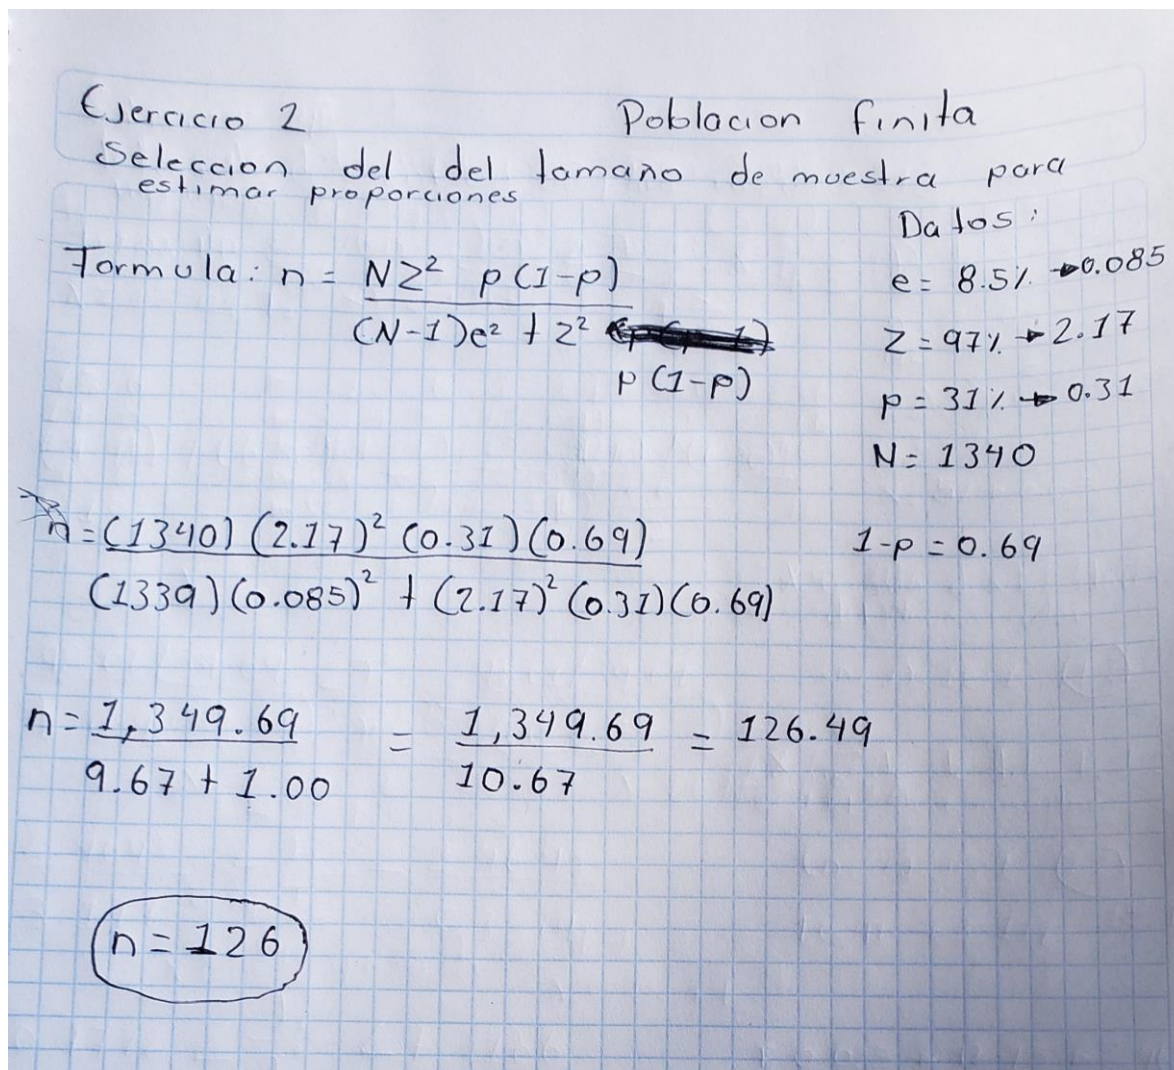 Ejercicio 2 Poblacion finita
Seleccion del del tamaño de muestra para
estimar proporciones
Datos:
Formula: n = NZ² p(1-p)
(N-1)e² + Z²
p(1-p)
e = 8.5% → 0.085
Z = 97% → 2.17
p = 31% → 0.31
N = 1340
n = (1340) (2.17)² (0.31) (0.69)
(1339) (0.085)² + (2.17)² (0.31) (0.69)
1-p = 0.69
n = 1,349.69 = 1,349.69 = 126.49
9.67 + 1.00 10.67
n = 126